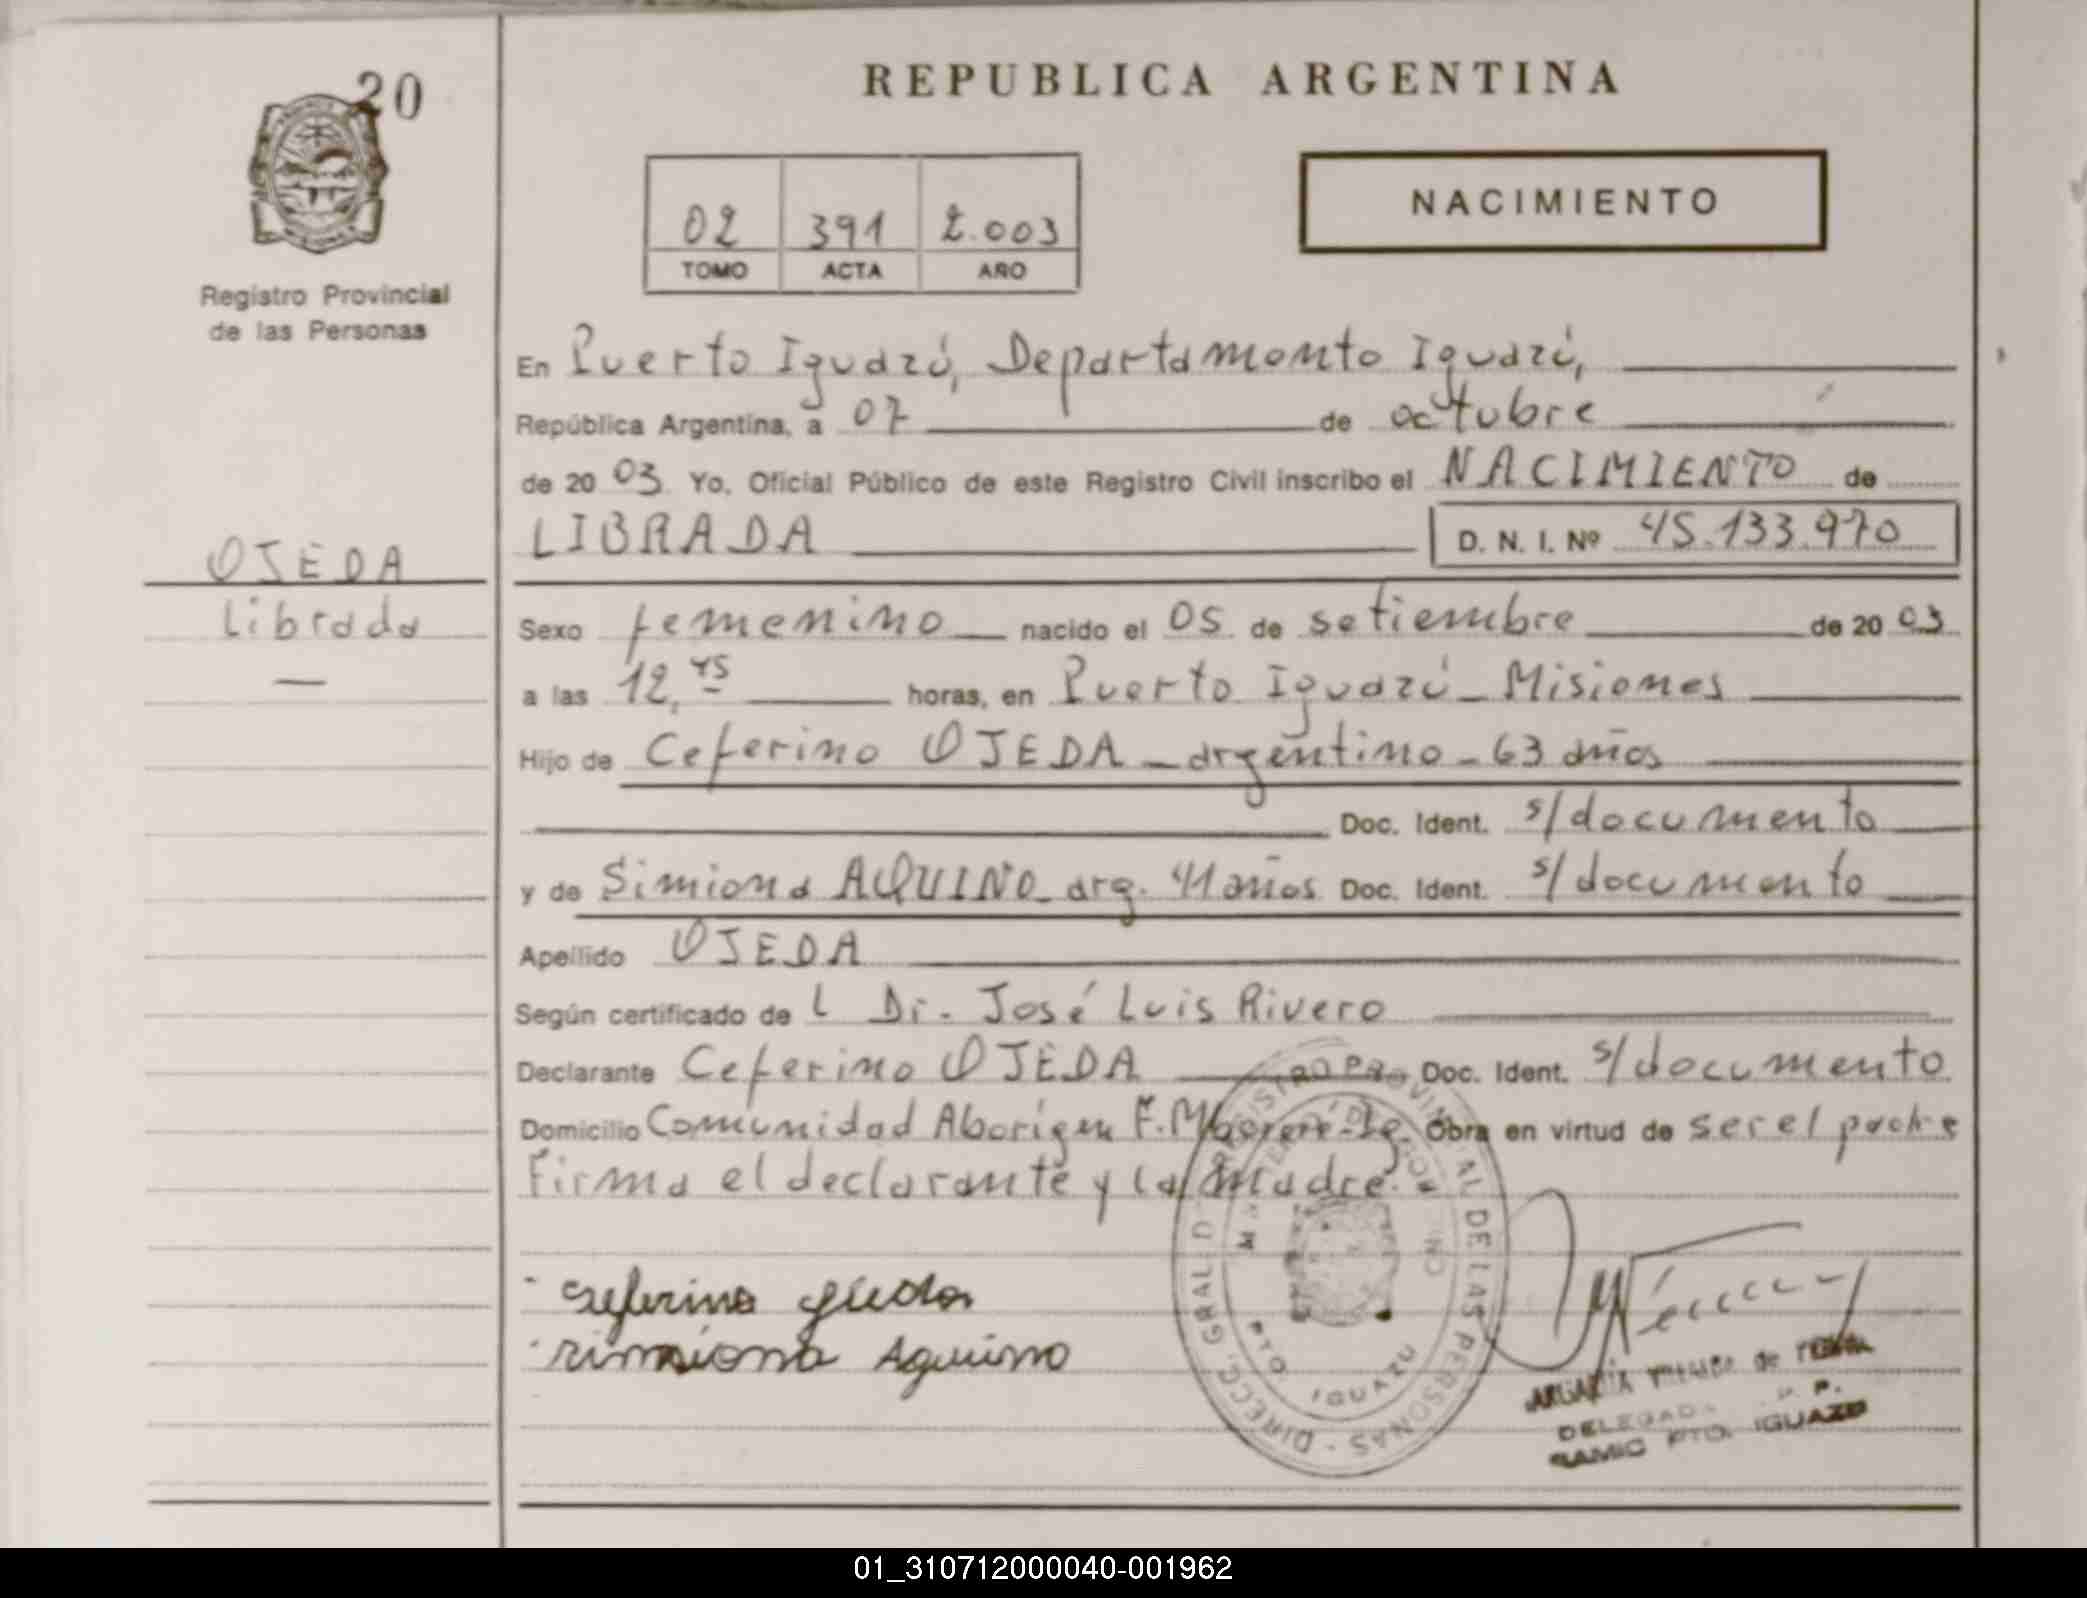 20
REPUBLICA ARGENTINA
02 391 2.003
TOMO ACTA AÑO
NACIMIENTO
Registro Provincial
de las Personas
En Puerto Iguazú, Departamento Iguazú,
República Argentina, a 07 de octubre
de 2003 Yo, Oficial Público de este Registro Civil inscribo el NACIMIENTO de
LIBRADA D. N. I. Nº 45.133.970
OJEDA
Librada
Sexo femenino nacido el 05 de setiembre de 2003
a las 12, horas, en Puerto Iguazú - Misiones
Hijo de Ceferino OJEDA - argentino - 63 años
Doc. Ident. s/documento
y de Simiona AQUINO - arg. 41 años Doc. Ident. s/documento
Apellido OJEDA
Según certificado del Dr. José Luis Rivero
Declarante Ceferino OJEDA Doc. Ident. s/documento
Domicilio Comunidad Aborigen F. Mbororé - Obra en virtud de ser el padre
Firma el declarante y la madre.
Simiona Aquino
DIRECC. GRAL D REGISTRO PROVINCIAL DE LAS PERSONAS
PTO. IGUAZU
DELEGADA
SAMIC PTO. IGUAZU
01_310712000040-001962